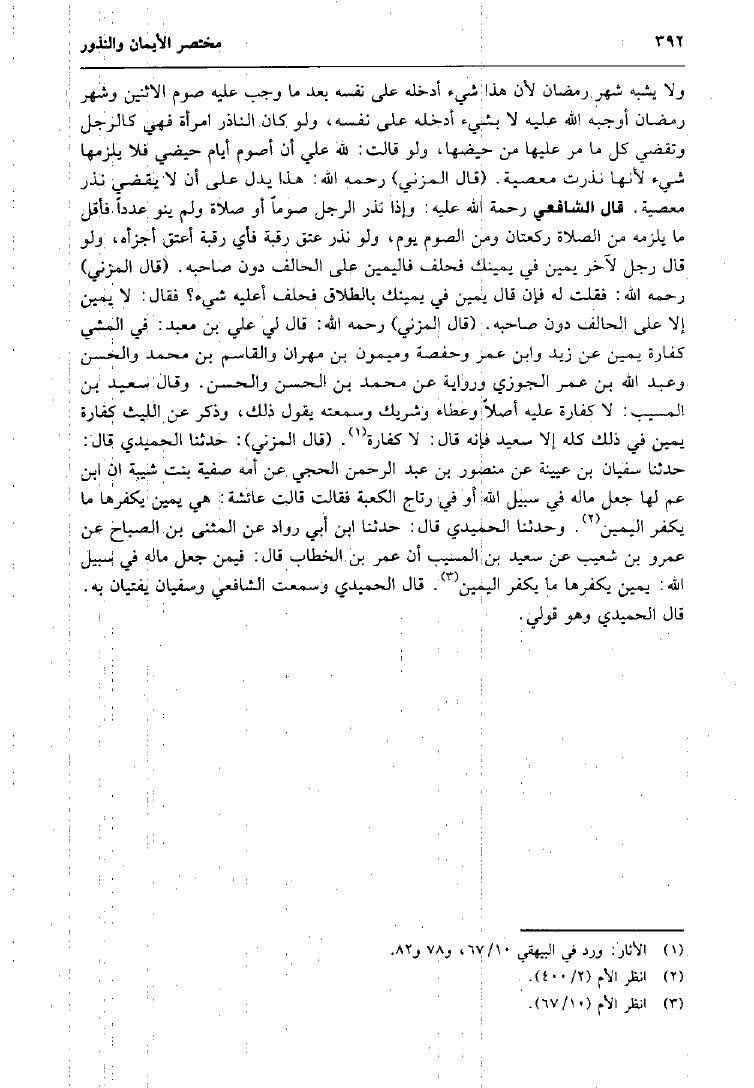 ٣٩٢ مختصر الأيمان والنذور
ولا يشبه شهر رمضان لأن هذا شيء أدخله على نفسه بعد ما وجب عليه صوم الاثنين وشهر
رمضان أوجبه الله عليه لا بشيء أدخله على نفسه، ولو كان الناذر امرأة فهي كالرجل
وتقضي كل ما مر عليها من حيضها، ولو قالت: لله علي أن أصوم أيام حيضي فلا يلزمها
شيء لأنها نذرت معصية. (قال المزني) رحمه الله: هذا يدل على أن لا يقضي نذر
معصية. قال الشافعي رحمة الله عليه: وإذا نذر الرجل صوماً أو صلاة ولم ينو عدداً فأقل
ما يلزمه من الصلاة ركعتان ومن الصوم يوم، ولو نذر عتق رقبة فأي رقبة أعتق أجزأه، ولو
قال رجل لآخر يمين في يمينك فحلف فاليمين على الحالف دون صاحبه. (قال المزني)
رحمه الله: فقلت له فإن قال يمين في يمينك بالطلاق فحلف أعليه شيء؟ فقال: لا يمين
إلا على الحالف دون صاحبه. (قال المزني) رحمه الله: قال لي علي بن معبد: في المشي
كفارة يمين عن زيد وابن عمر وحفصة وميمون بن مهران والقاسم بن محمد والحسن
وعبد الله بن عمر الجوزي ورواية عن محمد بن الحسن والحسن. وقال سعيد بن
المسيب: لا كفارة عليه أصلاً وعطاء وشريك وسمعته يقول ذلك، وذكر عن الليث كفارة
يمين في ذلك كله إلا سعيد فإنه قال: لا كفارة(١). (قال المزني): حدثنا الحميدي قال:
حدثنا سفيان بن عيينة عن منصور بن عبد الرحمن الحجي عن أمه صفية بنت شيبة ان ابن
عم لها جعل ماله في سبيل الله أو في رتاج الكعبة فقالت قالت عائشة: هي يمين يكفرها ما
يكفر اليمين(٢). وحدثنا الحميدي قال: حدثنا ابن أبي رواد عن المثنى بن الصباح عن
عمرو بن شعيب عن سعيد بن المسيب أن عمر بن الخطاب قال: فيمن جعل ماله في سبيل
الله: يمين يكفرها ما يكفر اليمين(٣). قال الحميدي وسمعت الشافعي وسفيان يفتيان به.
قال الحميدي وهو قولي.
(١) الأثار: ورد في البيهقي ٦٧/١٠، و٧٨ و٨٢.
(٢) انظر الأم (٤٠٠/٢).
(٣) انظر الأم (٦٧/١٠).